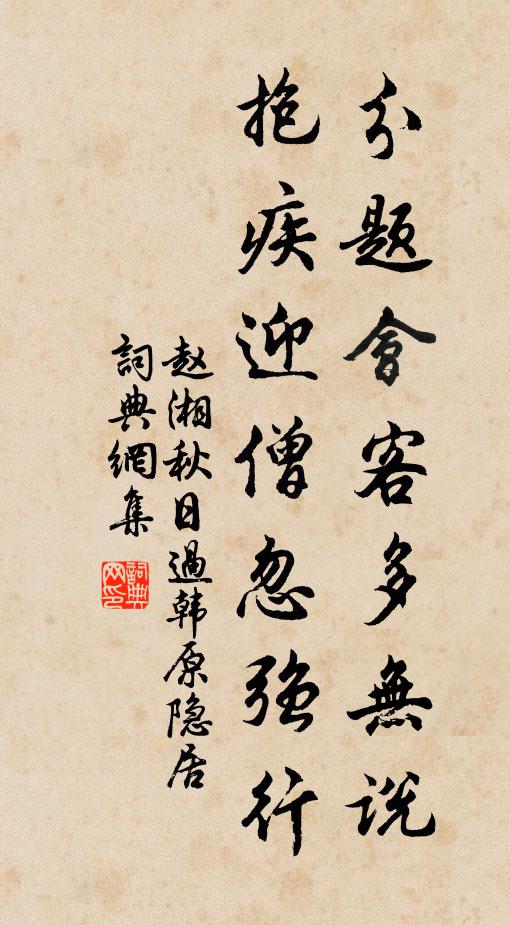 分题會客多無说
抱疾迎僧忽强行
赵湘秋日過韩原隐居
詞典網集
詞典
网印